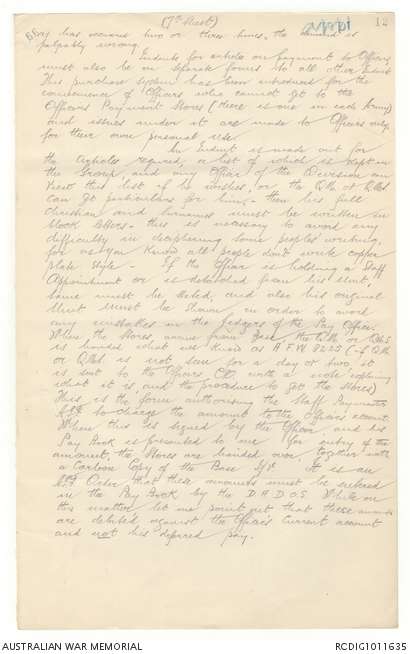 (7th Sheet) 12
has occurred two or three times, the demand is
palpably wrong.
Indents for articles on payment to Officers
must also be on separate forms to all other Indents
This purchase system has been introduced for the
convenience of Officers who cannot get to the
Officers Payment Stores (there is one in each Army)
and issues under it are made to Officers only
for their own personal use.
An Indent is made out for
the articles required, a list of which is kept in
the Group, and any Officer of the Division can
view this list if he wishes, or the QM or QMS
can get particulars for him, - then his full
Christian and Surnames must be written in
block letters - this is necessary to avoid any
difficulty in deciphering some peoples writing,
for as you know all people don't write copper
plate style - If the Officer is holding a Staff
Appointment or is detached from his Unit,
same must be stated, and also his original
Unit must be shown in order to avoid
any mistakes in the ledgers of the Pay Office.
When the Stores arrive from Base the QM or QMS
is handed what is known as A.F.W. 8225 (if QM
or QMS is not seen for a day or two, it
is sent to the Officers CO. with a note explaining
what it is and the procedure to get the stores)
This is the form authorising the Staff Paymaster
to charge the amount to the Officer's account.
When this is signed by the Officer and his
Pay Book is presented to me for entry of the
amount, the Stores are handed over, together with
a Carbon Copy of the Base It is an
Order that these amounts must be entered
in the Pay Book by the D.A.D.O.S. While on
this matter let me point out that these amounts
are debited against the Officer's Current account
and not his deferred pay.
AUSTRALIAN WAR MEMORIAL RCDIG1011635